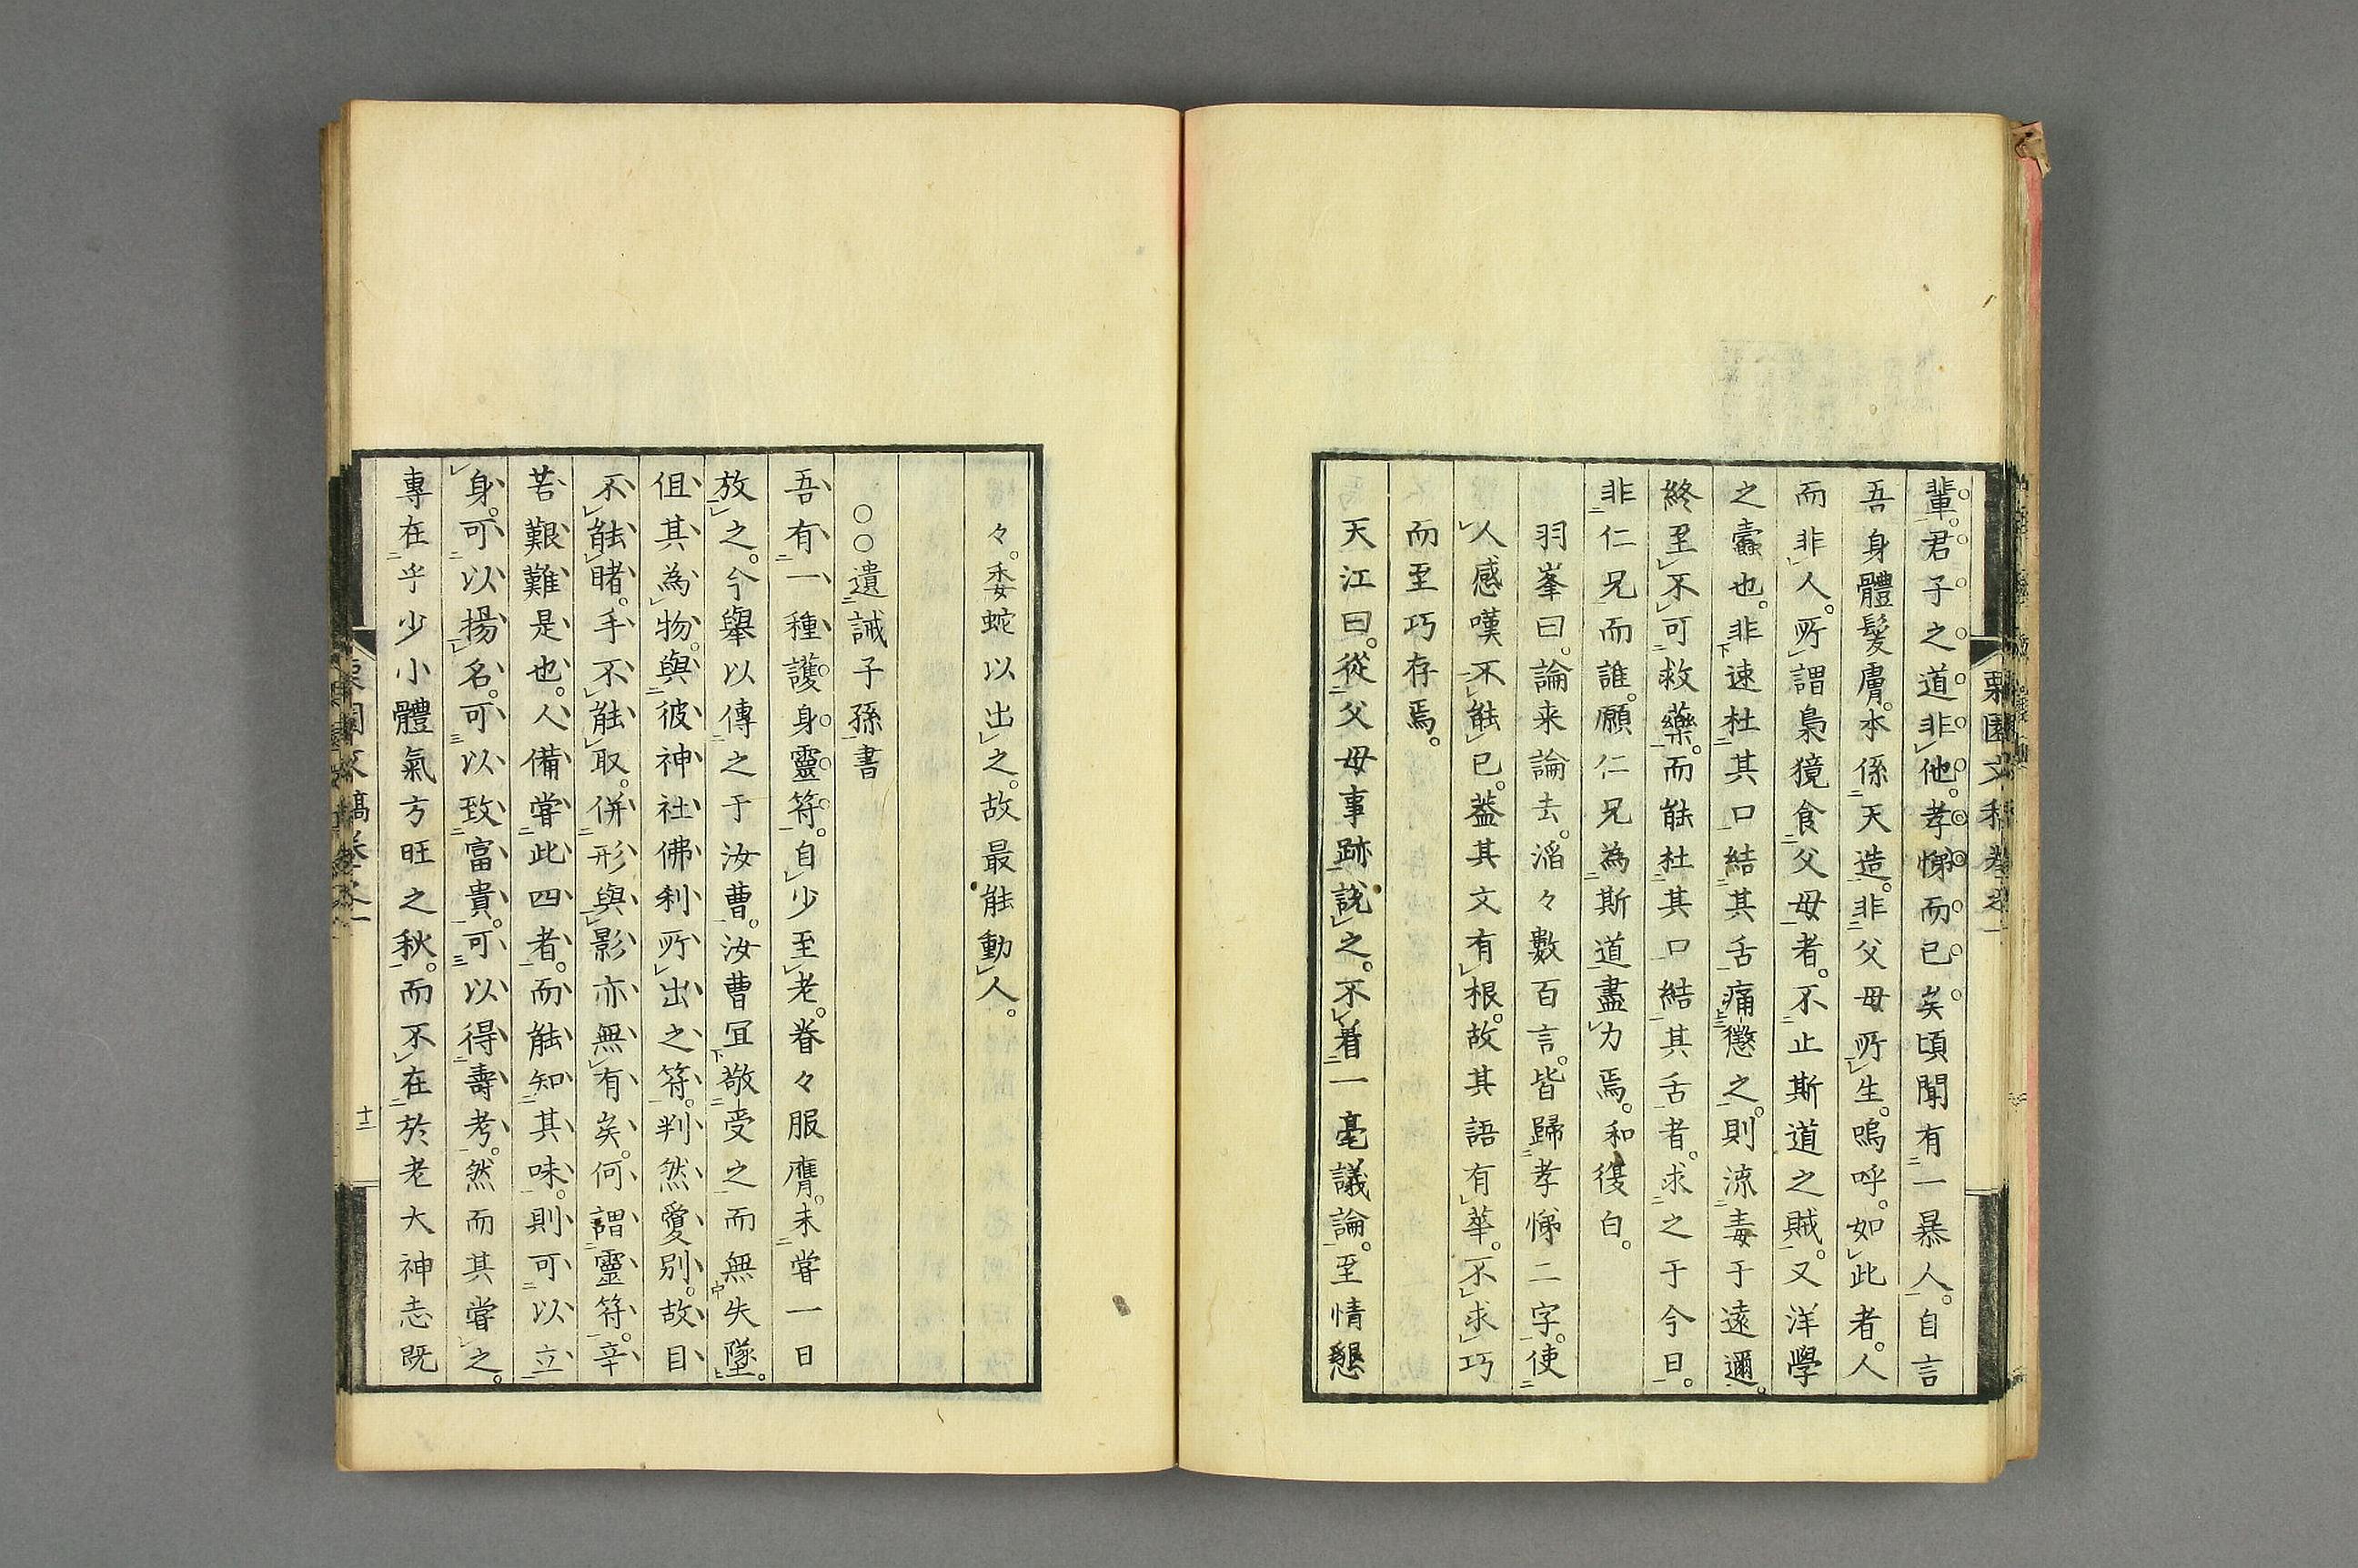 輩。君子之道。非他。孝悌而已矣頃聞有一暴人。自言
吾身體髮膚。本係天造。非父母所生。嗚呼。如此者。人
而非人。所謂梟獍食父母者。不止斯道之賊。又洋學
之蠹也。非速杜其口結其舌痛懲之。則流毒于遠邇。
終至不可救藥。而能杜其口結其舌者。求之于今日。
非仁兄而誰。願仁兄為斯道盡力焉。和復白。
羽峯曰。論来論去。滔々數百言。皆歸孝悌二字。使
人感嘆不能已。蓋其文有根。故其語有華。不求巧
而至巧存焉。
天江曰。從父母事跡說之。不着一毫議論。至情懇
々。委蛇以出之。故最能動人。
○○遺誡子孫書
吾有一種護身靈符。自少至老。眷々服膺。未嘗一日
放之。今舉以傳之于汝曹。汝曹宜敬受之而無失墜。
但其為物。與彼神社佛刹所出之符。判然愛別。故目
不能睹。手不能取。併形與影亦無有矣。何謂靈符。辛
苦艱難是也。人備嘗此四者。而能知其味。則可以立
身。可以揚名。可以致富貴。可以得壽考。然而其嘗之。
專在乎少小體氣方旺之秋。而不在於老大神志既
栗園文稿卷之一
十二